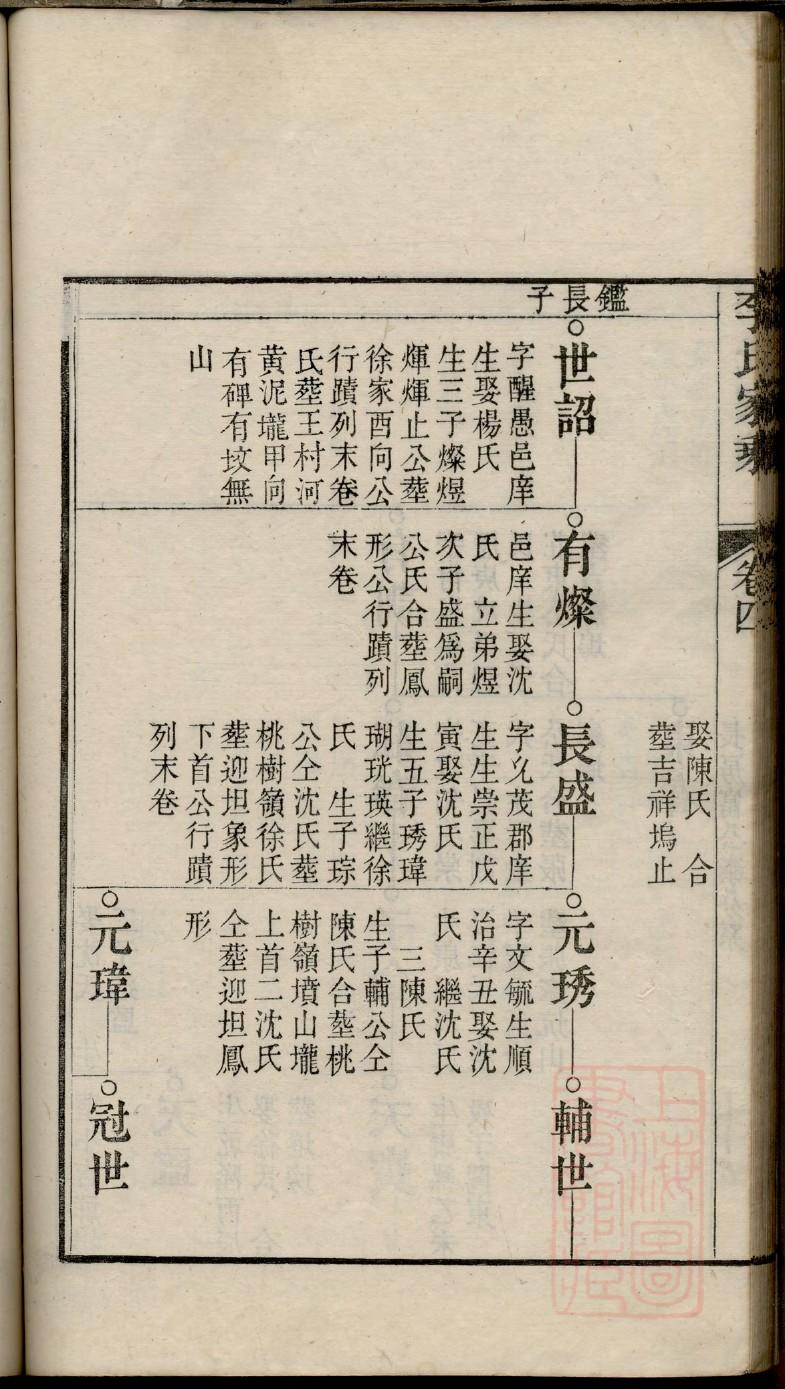 李氏家乘
卷四
娶陳氏　合
塟吉祥塢止
鑑長子
世詔
字醒愚邑庠
生娶楊氏
生三子燦煜
煇煇止公塟
徐家酉向公
行蹟列末卷
氏塟王村河
黃泥壠甲向
有碑有坟無
山
有燦
邑庠生娶沈
氏　立弟煜
次子盛爲嗣
公氏合塟鳳
形公行蹟列
末卷
長盛
字乆茂郡庠
生生崇正戊
寅娶沈氏
生五子琇瑋
瑚珖瑛繼徐
氏　生子琮
公仝沈氏塟
桃樹嶺徐氏
塟迎坦象形
下首公行蹟
列末卷
元琇
字文毓生順
治辛丑娶沈
氏　繼沈氏
三陳氏
生子輔公仝
陳氏合塟桃
樹嶺墳山壠
上首二沈氏
仝塟迎坦鳳
形
輔世
元瑋
冠世
上海圖書館藏